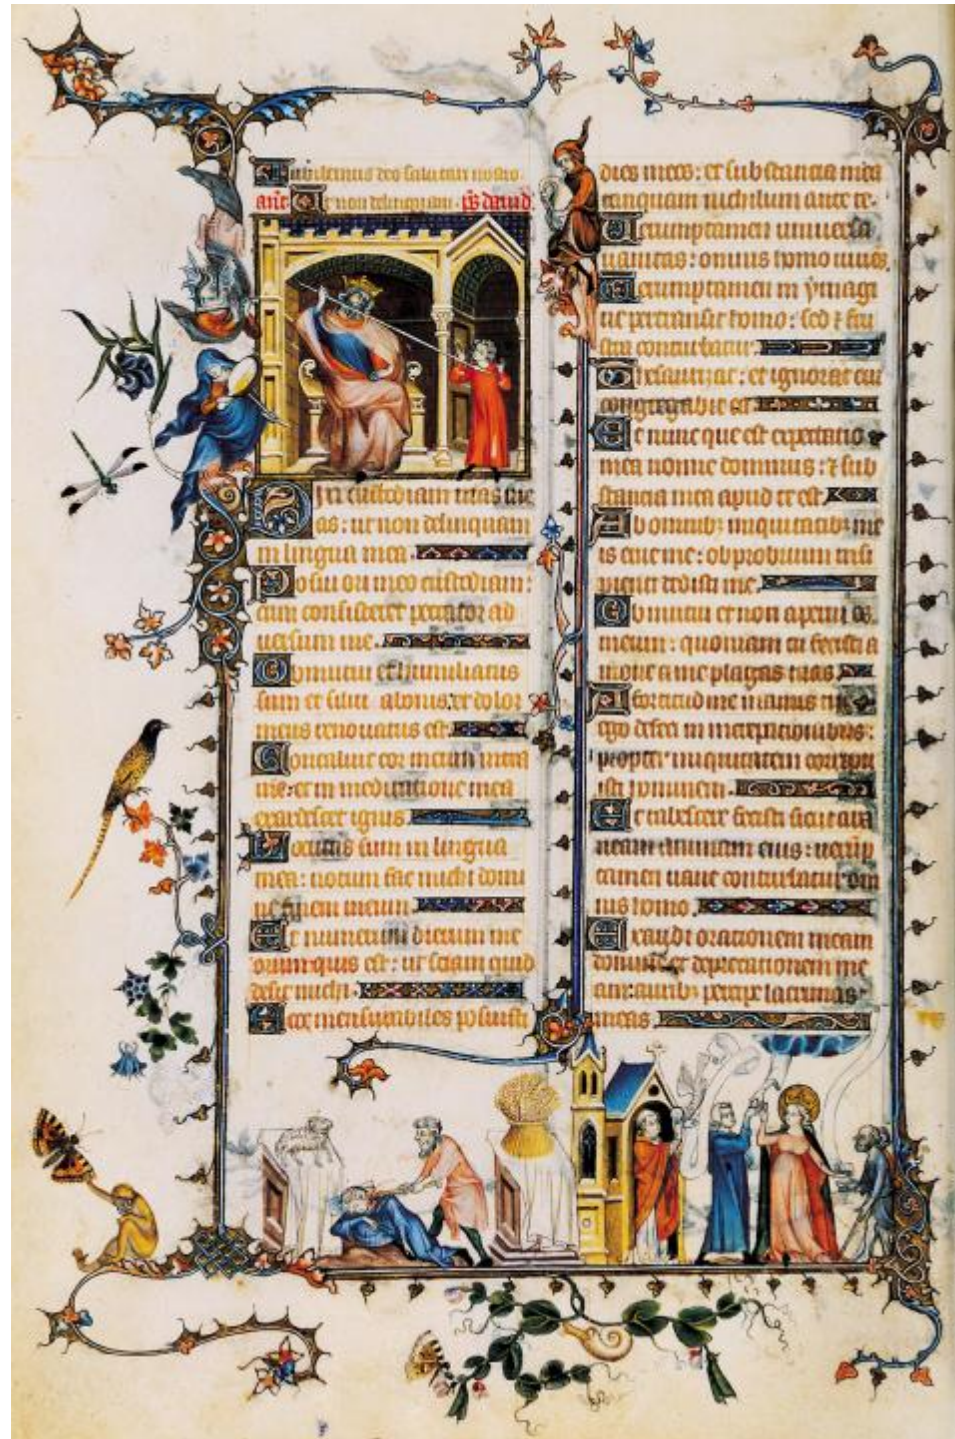 Jubilemus deo salutari nostro.
ant. Ut non delinquam. ps david
Dixi custodiam vias me
as: ut non delinquam
in lingua mea.
Posui ori meo custodiam:
cum consisteret peccator ad
versum me.
Obmutui et humiliatus
sum et silui a bonis: et dolor
meus renovatus est.
Concaluit cor meum intra
me: et in meditatione mea
exardescet ignis
Locutus sum in lingua
mea: notum fac michi domi
ne finem meum.
Et numerum dierum me
orum quis est: ut sciam quid
desit michi.
Ecce mensurabiles posuisti
dies meos: et substancia mea
tanquam nichilum ante te.
Verumptamen universa
vanitas: omnis homo vivens.
Verumptamen in ymagi
ne pertransit homo: sed et fru
stra conturbatur.
Thesaurizat: et ignorat cui
congregabit ea.
Et nunc que est expectatio
mea nonne dominus: et sub
stancia mea apud te est.
Ab omnibz iniquitatibz me
is erue me: obprobrium insi
pienti dedisti me.
Obmutui et non aperui os
meum: quoniam tu fecisti a
move a me plagas tuas.
A fortitudine manus tue
ego defeci in increpationibus:
propter iniquitatem corripu
isti hominem.
Et tabescere fecisti sicut ara
neam animam eius: verup
tamen vane conturbatur om
nis homo.
Exaudi orationem meam
domine et deprecationem me
am: auribz percipe lacrimas
meas